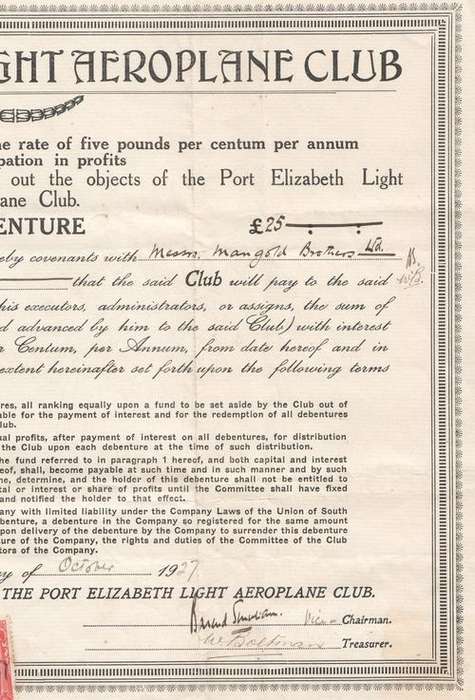 GHT AEROPLANE CLUB
e rate of five pounds per centum per annum
pation in profits
out the objects of the Port Elizabeth Light
ane Club.
ENTURE £25 — : — : —
eby covenants with Messrs. Mangold Brothers Ltd.
that the said Club will pay to the said
his executors, administrators, or assigns, the sum of
d advanced by him to the said Club) with interest
r Centum, per Annum, from date hereof and in
extent hereinafter set forth upon the following terms
res, all ranking equally upon a fund to be set aside by the Club out of
able for the payment of interest and for the redemption of all debentures
lub.
ual profits, after payment of interest on all debentures, for distribution
the Club upon each debenture at the time of such distribution.
he fund referred to in paragraph 1 hereof, and both capital and interest
eof, shall, become payable at such time and in such manner and by such
ne, determine, and the holder of this debenture shall not be entitled to
tal or interest or share of profits until the Committee shall have fixed
and notified the holder to that effect.
any with limited liability under the Company Laws of the Union of South
benture, a debenture in the Company so registered for the same amount
pon delivery of the debenture by the Company to surrender this debenture
ure of the Company, the rights and duties of the Committee of the Club
tors of the Company.
ay of October 1927
THE PORT ELIZABETH LIGHT AEROPLANE CLUB.
Vice- Chairman.
Treasurer.